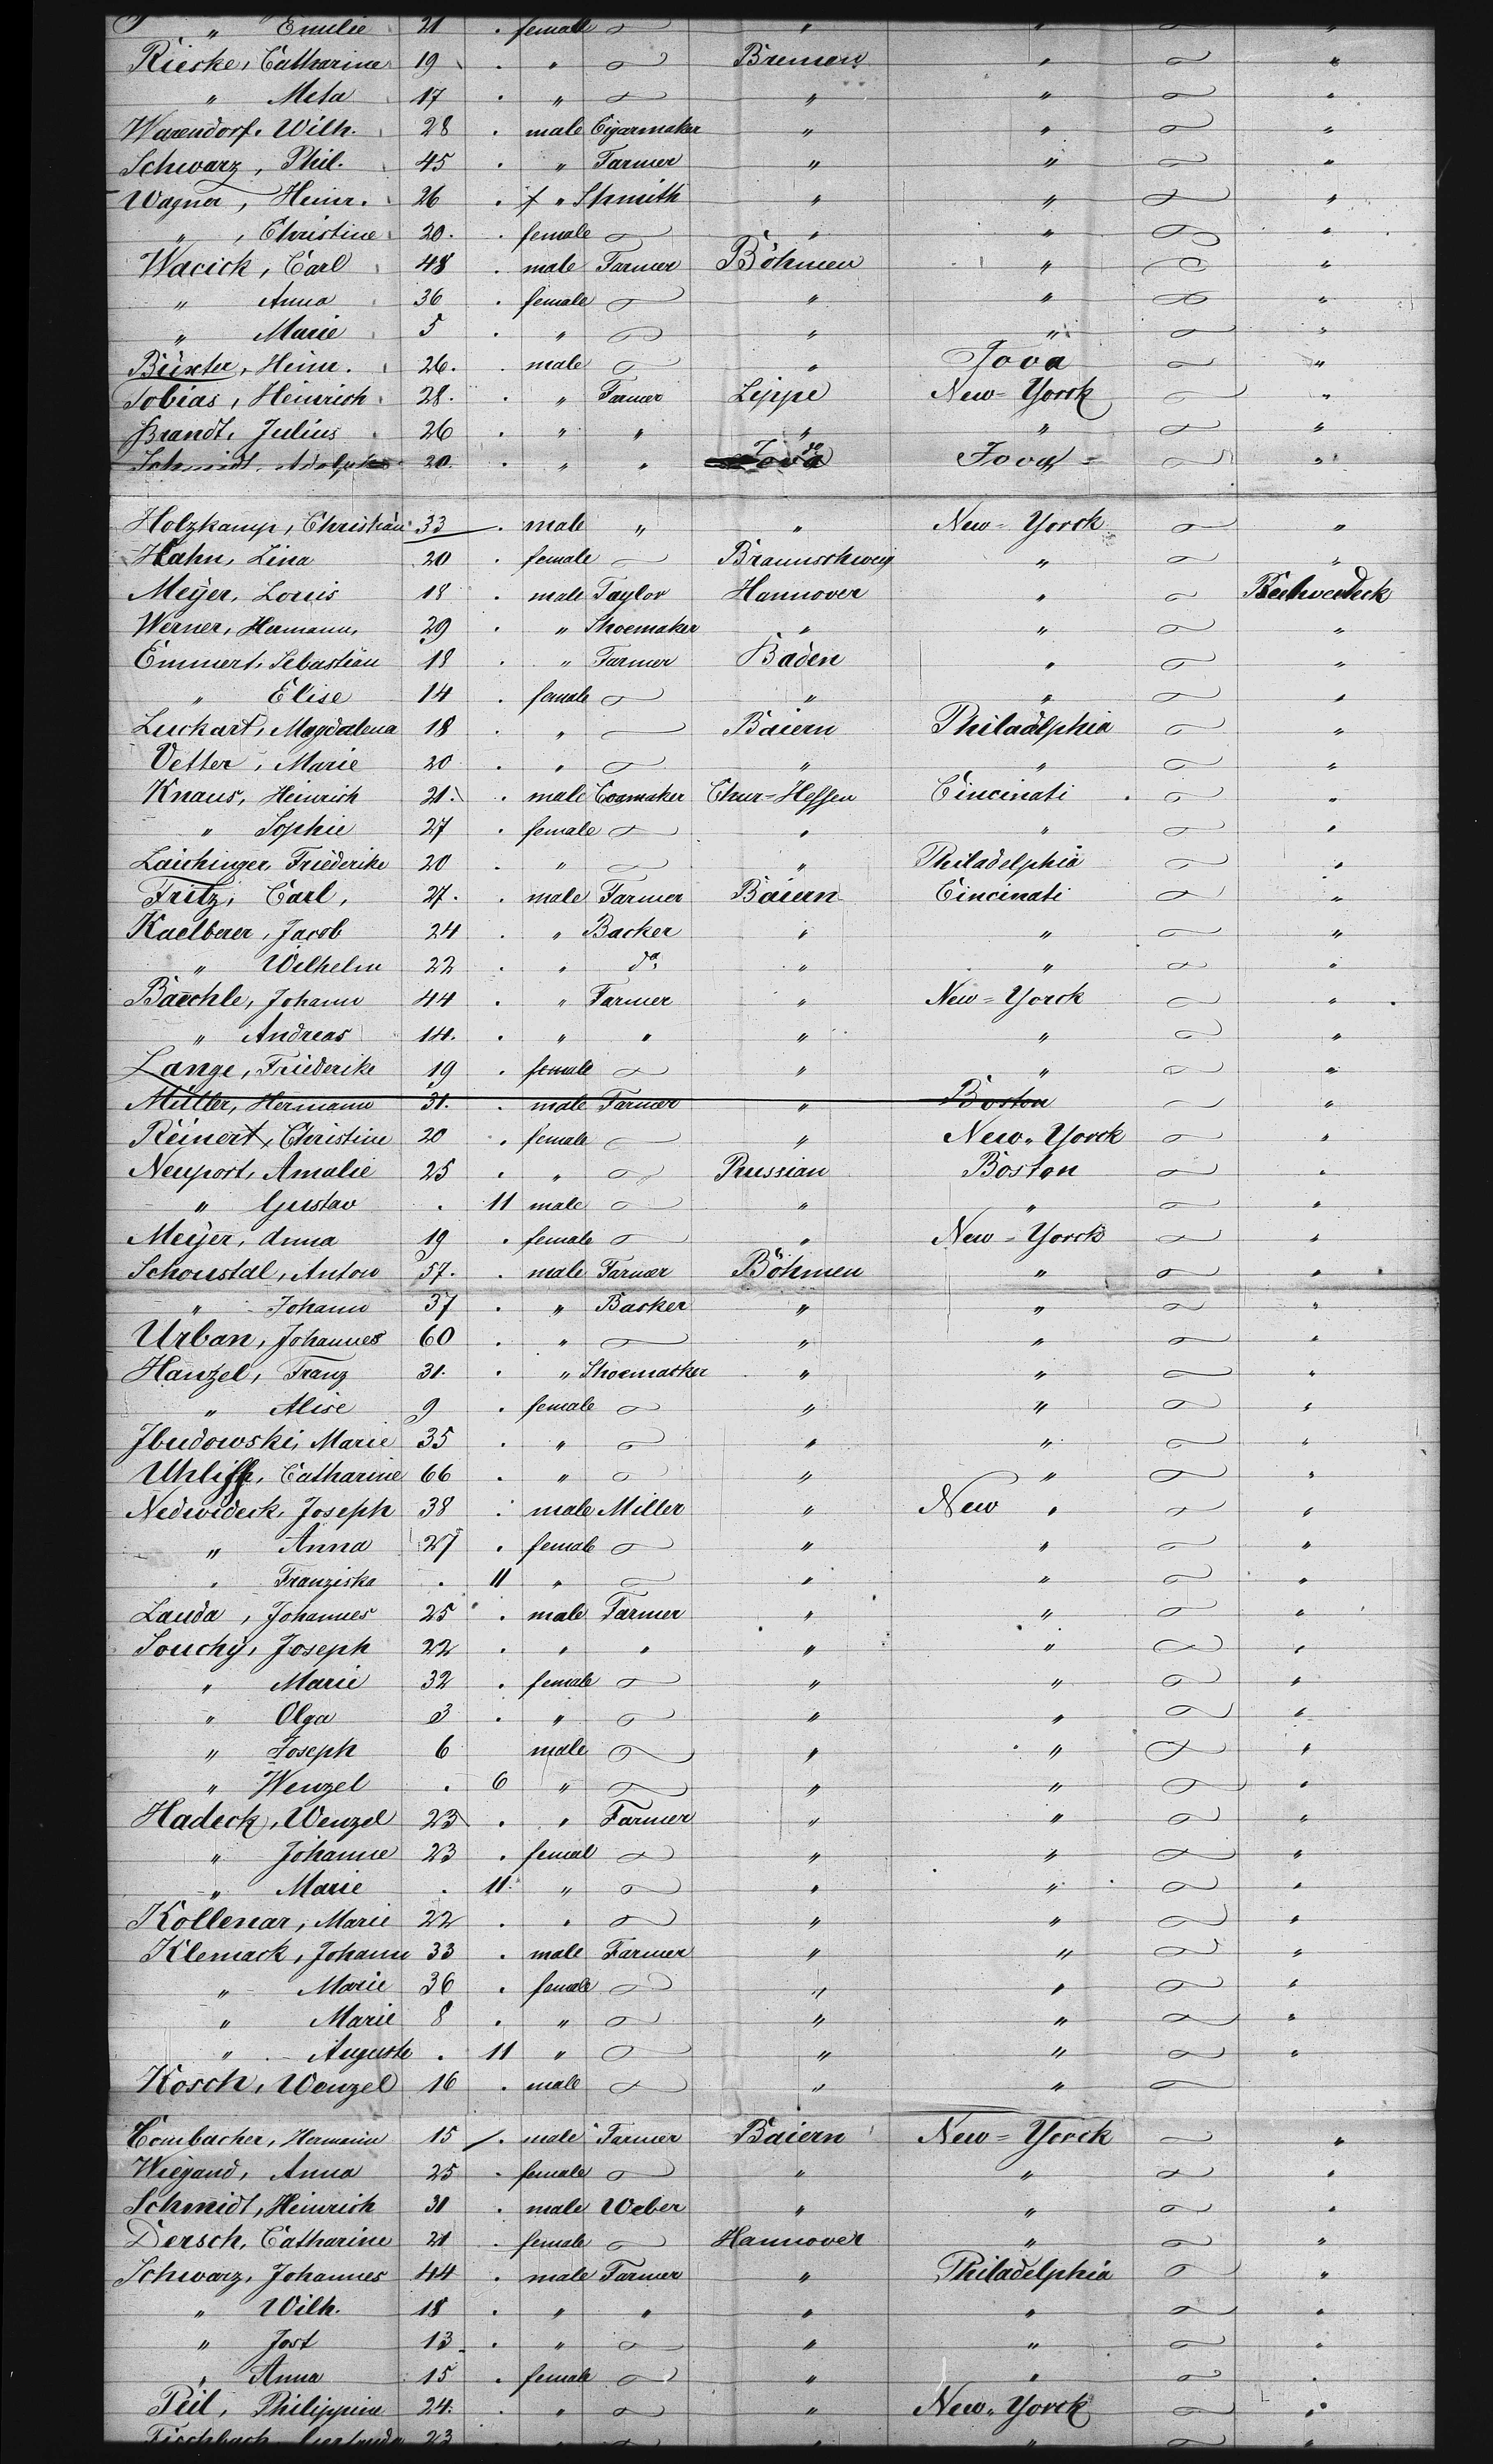 " Emilie 21 . female " " "
Rieske, Catharine 19 . " Bremen " "
" Meta 17 . " " " "
Warendorf, Wilh. 28 . male Cigarmaker " " "
Schwarz, Phil. 45 . " Farmer " " "
Wagner, Heinr. 26 . " Smith " " "
" , Christine 20. . female " " "
Wacick, Carl 48 . male Farmer Böhmen " "
" Anna 36 . female " " "
" Marie 5 . " " " "
Büxter, Heinr. 26. . male " Jova "
Tobias, Heinrich 28. . " Farmer Lippe New-Yorck "
Brandt, Julius 26 . " " " " "
Schmidt, Adolph 20. . " " Jova "
Holzkamp, Christian 33 . male " " New-Yorck "
Hahn, Lina 20 . female Braunschweig " "
Meÿer, Louis 18 . male Taylor Hannover "
Werner, Hermann, 29 . " Shoemaker " " "
Emmert, Sebastian 18 . " Farmer Baden " "
" Elise 14 . female " " "
Luckart, Magdalena 18 . " Baiern Philadelphia "
Vetter, Marie 20 . " " " "
Knaus, Heinrich 21. . male Chur-Hessen Cincinati "
" Sophie 27 . female " " "
Laichinger, Friederike 20 . " " Philadelphia "
Fritz, Carl, 27. . male Farmer Baiern Cincinati "
Kaelberer, Jacob 24 . " Backer " " "
" Wilhelm 22 . " do. " " "
Baechle, Johann 44 . " Farmer " New-Yorck "
" Andreas 14. . " " " " "
Lange, Friederike 19 . female " " "
Müller, Hermann 31. . male Farmer " Boston "
Reinert, Christine 20 . female " New-Yorck "
Neuport, Amalie 25 . " Prussian Boston "
" Gustav . 11 male " " "
Meÿer, Anna 19 . female " New-Yorck "
Schoustal, Anton 57. . male Farmer Böhmen " "
" Johann 37 . " Backer " " "
Urban, Johannes 60 . " " " "
Hanzel, Franz 31. . " Shoemacker " " "
" Alise 9 . female " " "
Jbudowski, Marie 35 . " " " "
Catharine 66 . " " " "
Nedwideck, Joseph 38 . male Miller " New " "
" Anna 27 . female " " "
" Franziska . 11 " " " "
Lauda, Johannes 25 . male Farmer " " "
Souchÿ, Joseph 22 . " " " " "
" Marie 32 . female " " "
" Olga 3 . " " " "
" Joseph 6 male " " "
" Wenzel . 6 " " " "
Hadeck, Wenzel 23 . " Farmer " " "
" Johanne 23 . femal " " "
" Marie . 11. " " " "
Kollenar, Marie 22 . " " " "
Klemack, Johann 33 . male Farmer " " "
" Marie 36 . female " " "
" Marie 8 . " " " "
" Auguste . 11 " " " "
Kosch, Wenzel 16 . male " "
Combacher, Hermann 15 . male Farmer Baiern New-Yorck "
Wiegand, Anna 25 . female " " "
Schmidt, Heinrich 31 . male Weber " " "
Dersch, Catharine 21 . female Hannover " "
Schwarz, Johannes 44 . male Farmer " Philadelphia "
" Wilh. 18 . " " " " "
" Jost 13 . " " " "
" Anna 15 . female " " "
Peil, Philippine 24. . " " New-Yorck "
Fischbach, 23